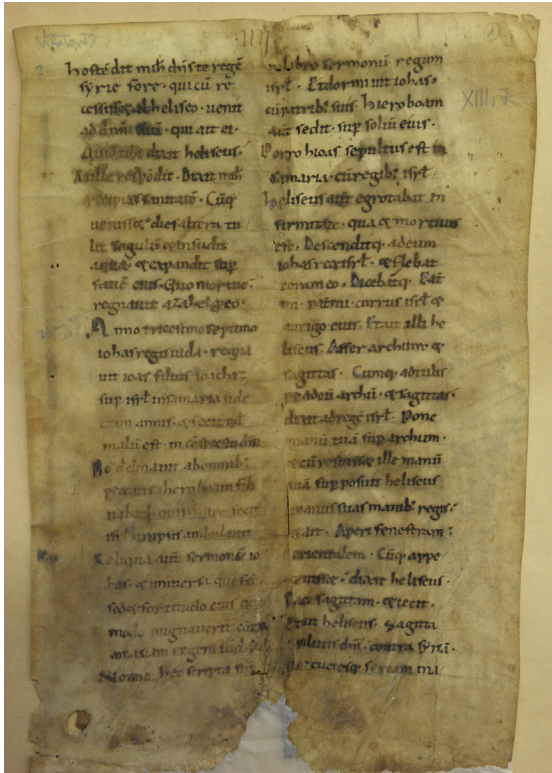 hostēdit mih dn̄s te regē
syrie fore · qui cū re
cessisset ab heliseo · uenit
ad dn̄m suū · qui ait ei ·
Quid tibi dixit heliseus ·
At ille respōdit · Dixit mih
recipias sanitatē · Cūq;
uenisset dies altera tu
lit sagulū & infudit
aquā · & expandit sup
faciē eius · Quo mortuo ·
regnauit azahel p eo ·
Anno tricesimo septimo
iohas regis iuda · regna
uit ioas filius ioachaz
sup isrł in samaria sede
cim annis · & fecit qđ
malū est · in cōspectu dn̄i
No declinauit ab omnib;
peccatis iheroboam filii
nabath qui peccare fecit
isrł in ipsis ambulauit
Reliqua aut̄ sermonū io
has · & uniuersa que fe
sed & fortitudo eius quo
modo pugnauerit
amasiam regem iuda
Nonne hec scripta
in libro sermonū regum
isrł · Et dormiuit iohas ·
cū patrib; suis · hieroboam
aut̄ sedit · sup soliū eius ·
Porro hioas sepultus est in
samaria · cū regib; isrł ·
heliseus aut̄ egrotabat in
firmitate · qua & mortuus
est · Descenditq; ad eum
iohas rex isrł · & flebat
coram eo · Dicebatq; Pat̄
mi · pat̄ mi · currus isrł &
auriga eius · Et ait illi he
liseus · Affer archum · &
sagittas · Cumq; adtulis
set ad eū archū · & sagittas ·
dixit ad regē isrł · Pone
manū tuā sup archum ·
& cū posuisset ille manū
suā sup posuit heliseus
manus suas manib; regis ·
& ait · Aperi fenestram ·
orientalem · Cūq; appe
ruisset · dixit heliseus ·
Iace sagittam · & iecit ·
Et ait heliseus · Sagitta
salutis dn̄i · contra syriā ·
Percutiesq; syriam in a